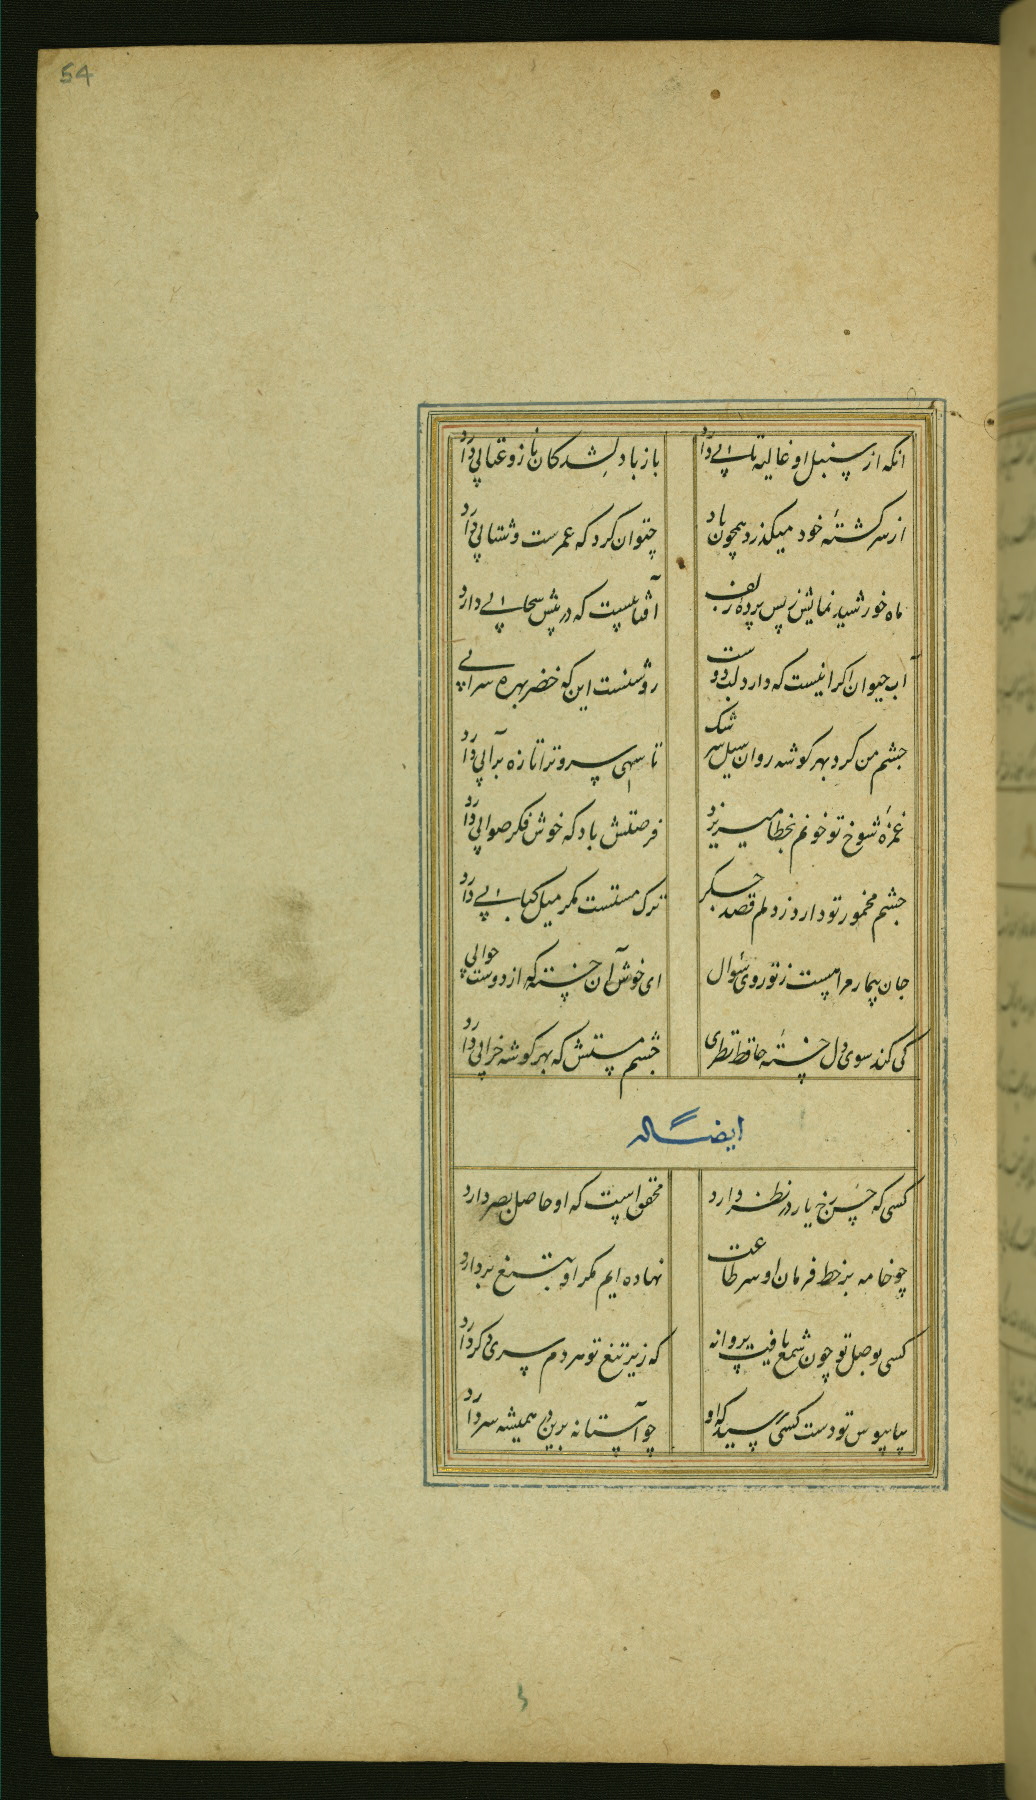 54
انکه از سنبل او غالیه تابی دارد
باز با دلشدکان ناز و عتابی دارد
از سر کشتهٔ خود میکذرد همچون باد
چتوان کرد که عمرست و شتابی دارد
ماه خورشید نمایش ز پس پردهٔ زلف
آفتابیست که در پیش سحابی دارد
آب حیوان اکر اینست که دارد لب دوست
روشنست این که خضر بهره سرابی
چشم من کرد بهر کوشه روان سیل سرشک
تا سهی سرو ترا تازه برآبی دارد
غمزهٔ شوخ تو خونم بخطا میریزد
فرصتش باد که خوش فکر صوابی دارد
چشم مخمور تو دارد ز دلم قصد جکر
ترک مستست مکر میل کبابی دارد
جان بیمار مرا نیست ز تو روی سؤال
ای خوش آن خسته که از دوست جوابی
کی کند سوی دل خستهٔ حافظ نظری
چشم مستش که بهر کوشه خرابی دارد
ایضاً له
کسی که حسن رخ یار در نظر دارد
محقق است که او حاصل بصر دارد
چو خامه بر خط فرمان او سر طاعت
نهاده ایم مکر او بتیغ بردارد
کسی بوصل تو چون شمع یافت پروانه
که زیر تیغ تو هر دم سری دکر دارد
بپایبوس تو دست کسی رسید که او
چو آستانه برین در همیشه سر دارد